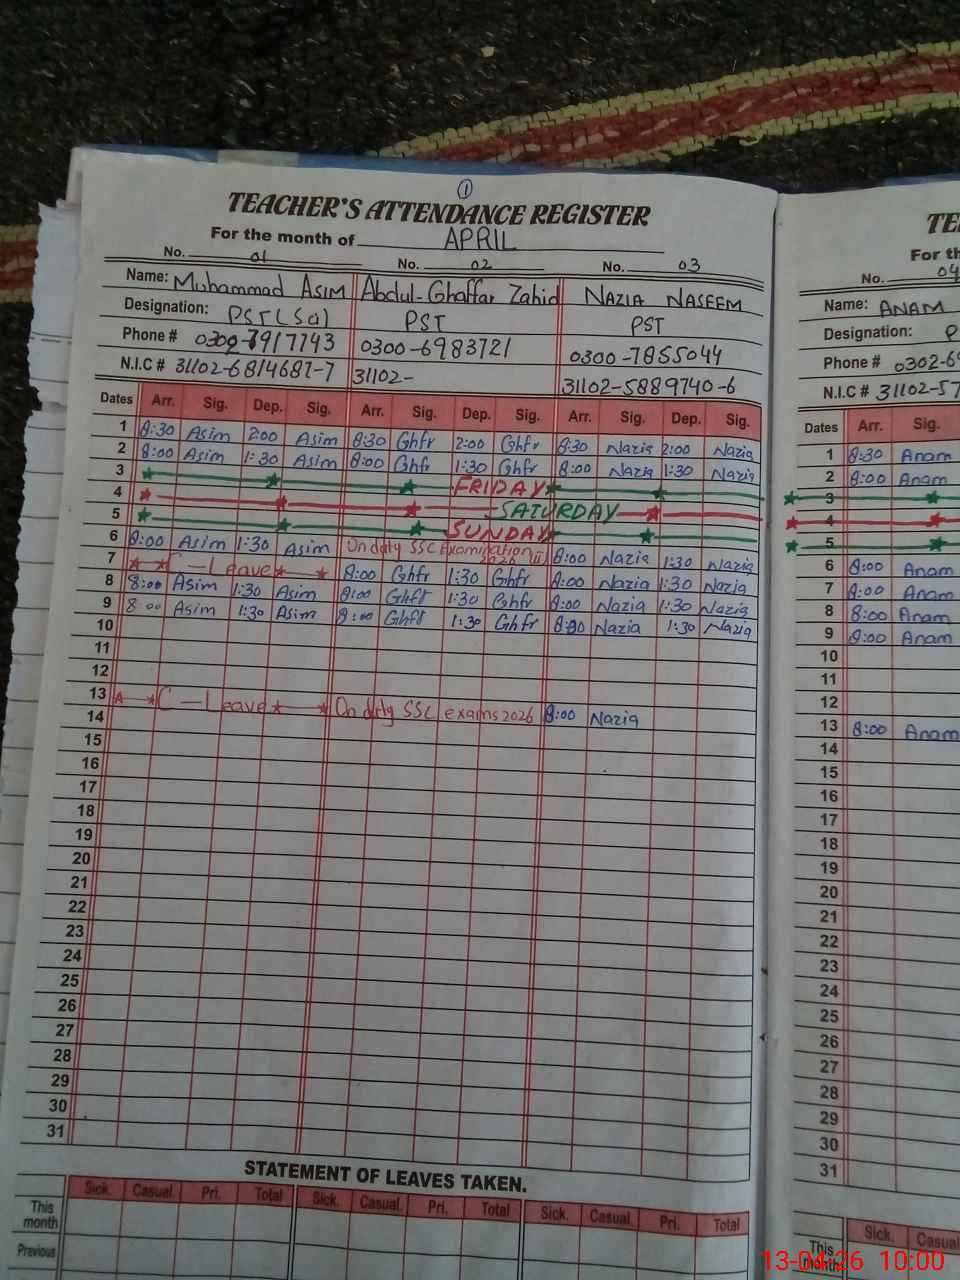 1
TEACHER'S ATTENDANCE REGISTER
For the month of APRIL
No. 01 No. 02 No. 03
Name: Muhammad ASIM Abdul-Ghaffar Zahid NAZIA NASEEM
Designation: PST(Sci) PST PST
Phone # 0309-7917743 0300-6983721 0300-7855044
N.I.C # 31102-6814687-7 31102- 31102-5889740-6
Dates Arr. Sig. Dep. Sig. Arr. Sig. Dep. Sig. Arr. Sig. Dep. Sig.
1 8:30 Asim 2:00 Asim 8:30 Ghfr 2:00 Ghfr 8:30 Nazia 2:00 Nazia
2 8:00 Asim 1:30 Asim 8:00 Ghfr 1:30 Ghfr 8:00 Nazia 1:30 Nazia
3 FRIDAY
4 SATURDAY
5 SUNDAY
6 8:00 Asim 1:30 Asim On duty SSC Examination 2026 8:00 Nazia 1:30 Nazia
7 C-Leave 8:00 Ghfr 1:30 Ghfr 8:00 Nazia 1:30 Nazia
8 8:00 Asim 1:30 Asim 8:00 Ghfr 1:30 Ghfr 8:00 Nazia 1:30 Nazia
9 8:00 Asim 1:30 Asim 8:00 Ghfr 1:30 Ghfr 8:00 Nazia 1:30 Nazia
10
11
12
13 C-Leave On duty SSC exams 2026 8:00 Nazia
14
15
16
17
18
19
20
21
22
23
24
25
26
27
28
29
30
31
STATEMENT OF LEAVES TAKEN.
Sick. Casual. Pri. Total Sick. Casual. Pri. Total Sick. Casual. Pri. Total
This month
Previous
For th
No. 04
Name: ANAM
Designation: P
Phone # 0302-6
N.I.C # 31102-57
Dates Arr. Sig.
1 8:30 Anam
2 8:00 Anam
3
4
5
6 8:00 Anam
7 8:00 Anam
8 8:00 Anam
9 8:00 Anam
10
11
12
13 8:00 Anam
14
15
16
17
18
19
20
21
22
23
24
25
26
27
28
29
30
31
Sick. Casual
This month
13-04-26 10:00